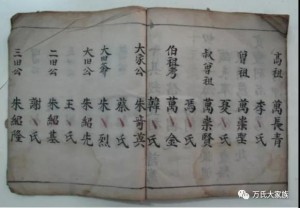 高祖 萬長青
李氏
曾祖 萬崇奎
夏氏
叔曾祖 萬崇賢
馮氏
伯祖考 萬金
韓氏
大家公 朱奇英
蔡氏
大田爺 朱烈
大田公 朱紹先
王氏
二田公 朱紹基
謝氏
三田公 朱紹隆
万氏大家族